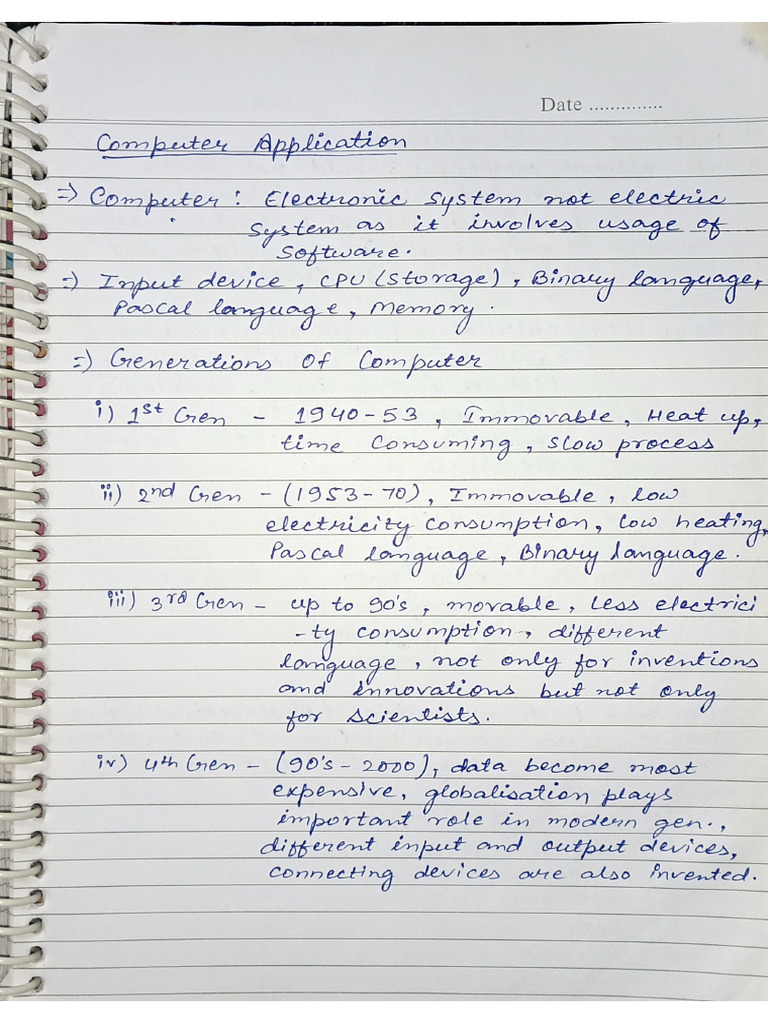 Date ..............
Computer Application
⇒ Computer : Electronic System not electric
System as it involves usage of
Software.
⇒ Input device, CPU (Storage), Binary language,
Pascal language, Memory.
⇒ Generations of Computer
i) 1st Gen - 1940-53, Immovable, Heat up,
time Consuming, Slow process
ii) 2nd Gen - (1953-70), Immovable, low
electricity consumption, low heating,
Pascal language, Binary language.
iii) 3rd Gen - up to 90's, movable, Less electrici
-ty consumption, different
language, not only for inventions
and innovations but not only
for scientists.
iv) 4th Gen - (90's - 2000), data become most
expensive, globalisation plays
important role in modern gen.,
different input and output devices,
connecting devices are also invented.